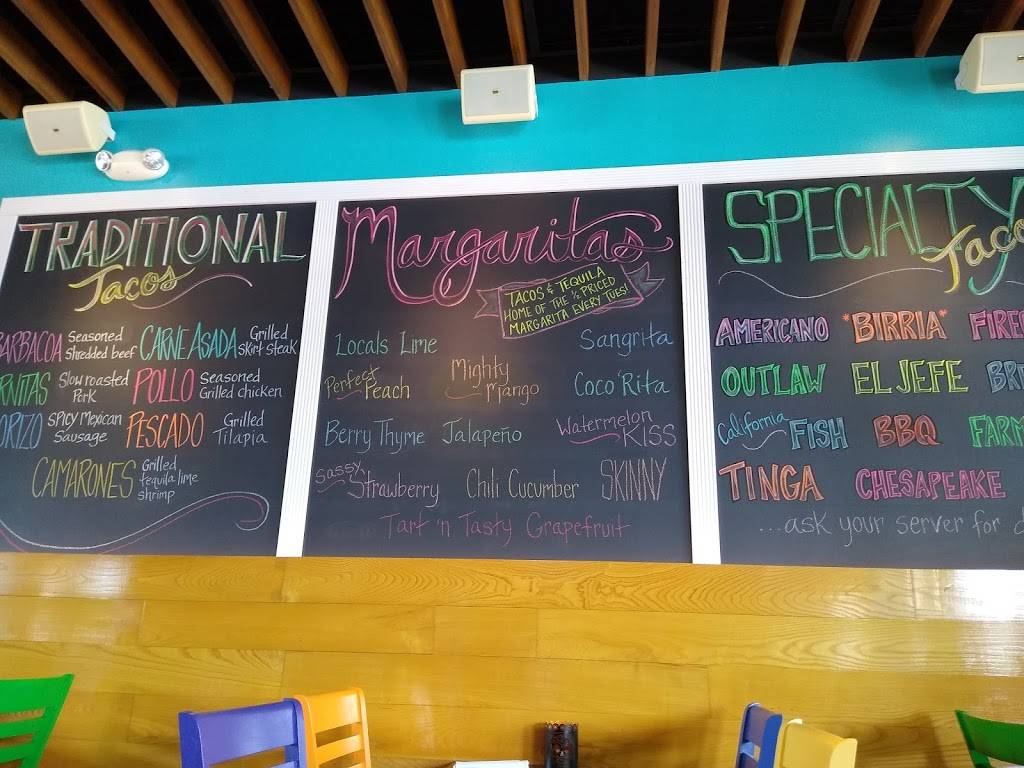 TRADITIONAL
Tacos
BARBACOA Seasoned Shredded beef CARNE ASADA Grilled Skirt steak
RNITAS Slow roasted Pork POLLO Seasoned Grilled chicken
ORIZO SPICY Mexican Sausage PESCADO Grilled Tilapia
CAMARONES Grilled tequila lime shrimp
Margaritas
TACOS & TEQUILA
HOME OF THE ½ PRICED
MARGARITA EVERY TUES!
Locals Lime Sangrita
Perfect Peach Mighty Mango Coco'Rita
Berry Thyme Jalapeño Watermelon KISS
Sassy Strawberry Chili Cucumber SKINNY
Tart 'n Tasty Grapefruit
SPECIALTY
Taco
AMERICANO *BIRRIA* FIREC
OUTLAW EL JEFE BR
California FISH BBQ FARM
TINGA CHESAPEAKE
...ask your server for